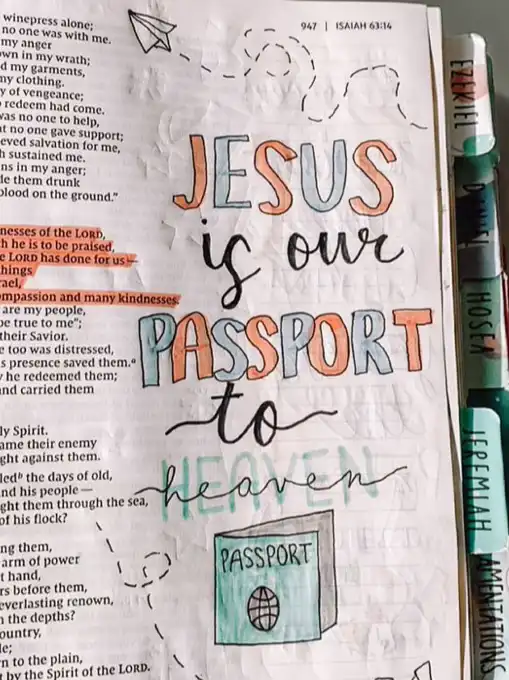 947 | ISAIAH 63:14
winepress alone;
no one was with me.
my anger
own in my wrath;
d my garments,
my clothing.
y of vengeance;
redeem had come.
was no one to help,
at no one gave support;
ieved salvation for me,
h sustained me.
ns in my anger;
de them drunk
blood on the ground."
nesses of the LORD,
ch he is to be praised,
e LORD has done for us—
things
rael,
ompassion and many kindnesses.
are my people,
be true to me";
their Savior.
e too was distressed,
s presence saved them.a
y he redeemed them;
and carried them
ly Spirit.
ame their enemy
ght against them.
lledb the days of old,
nd his people—
ght them through the sea,
of his flock?
ng them,
arm of power
t hand,
rs before them,
everlasting renown,
n the depths?
ountry,
le;
n to the plain,
t by the Spirit of the LORD.
JESUS
is our
PASSPORT
to
HEAVEN
heaven
PASSPORT
EZEKIEL
DANIEL
HOSEA
JEREMIAH
AMENTATIONS